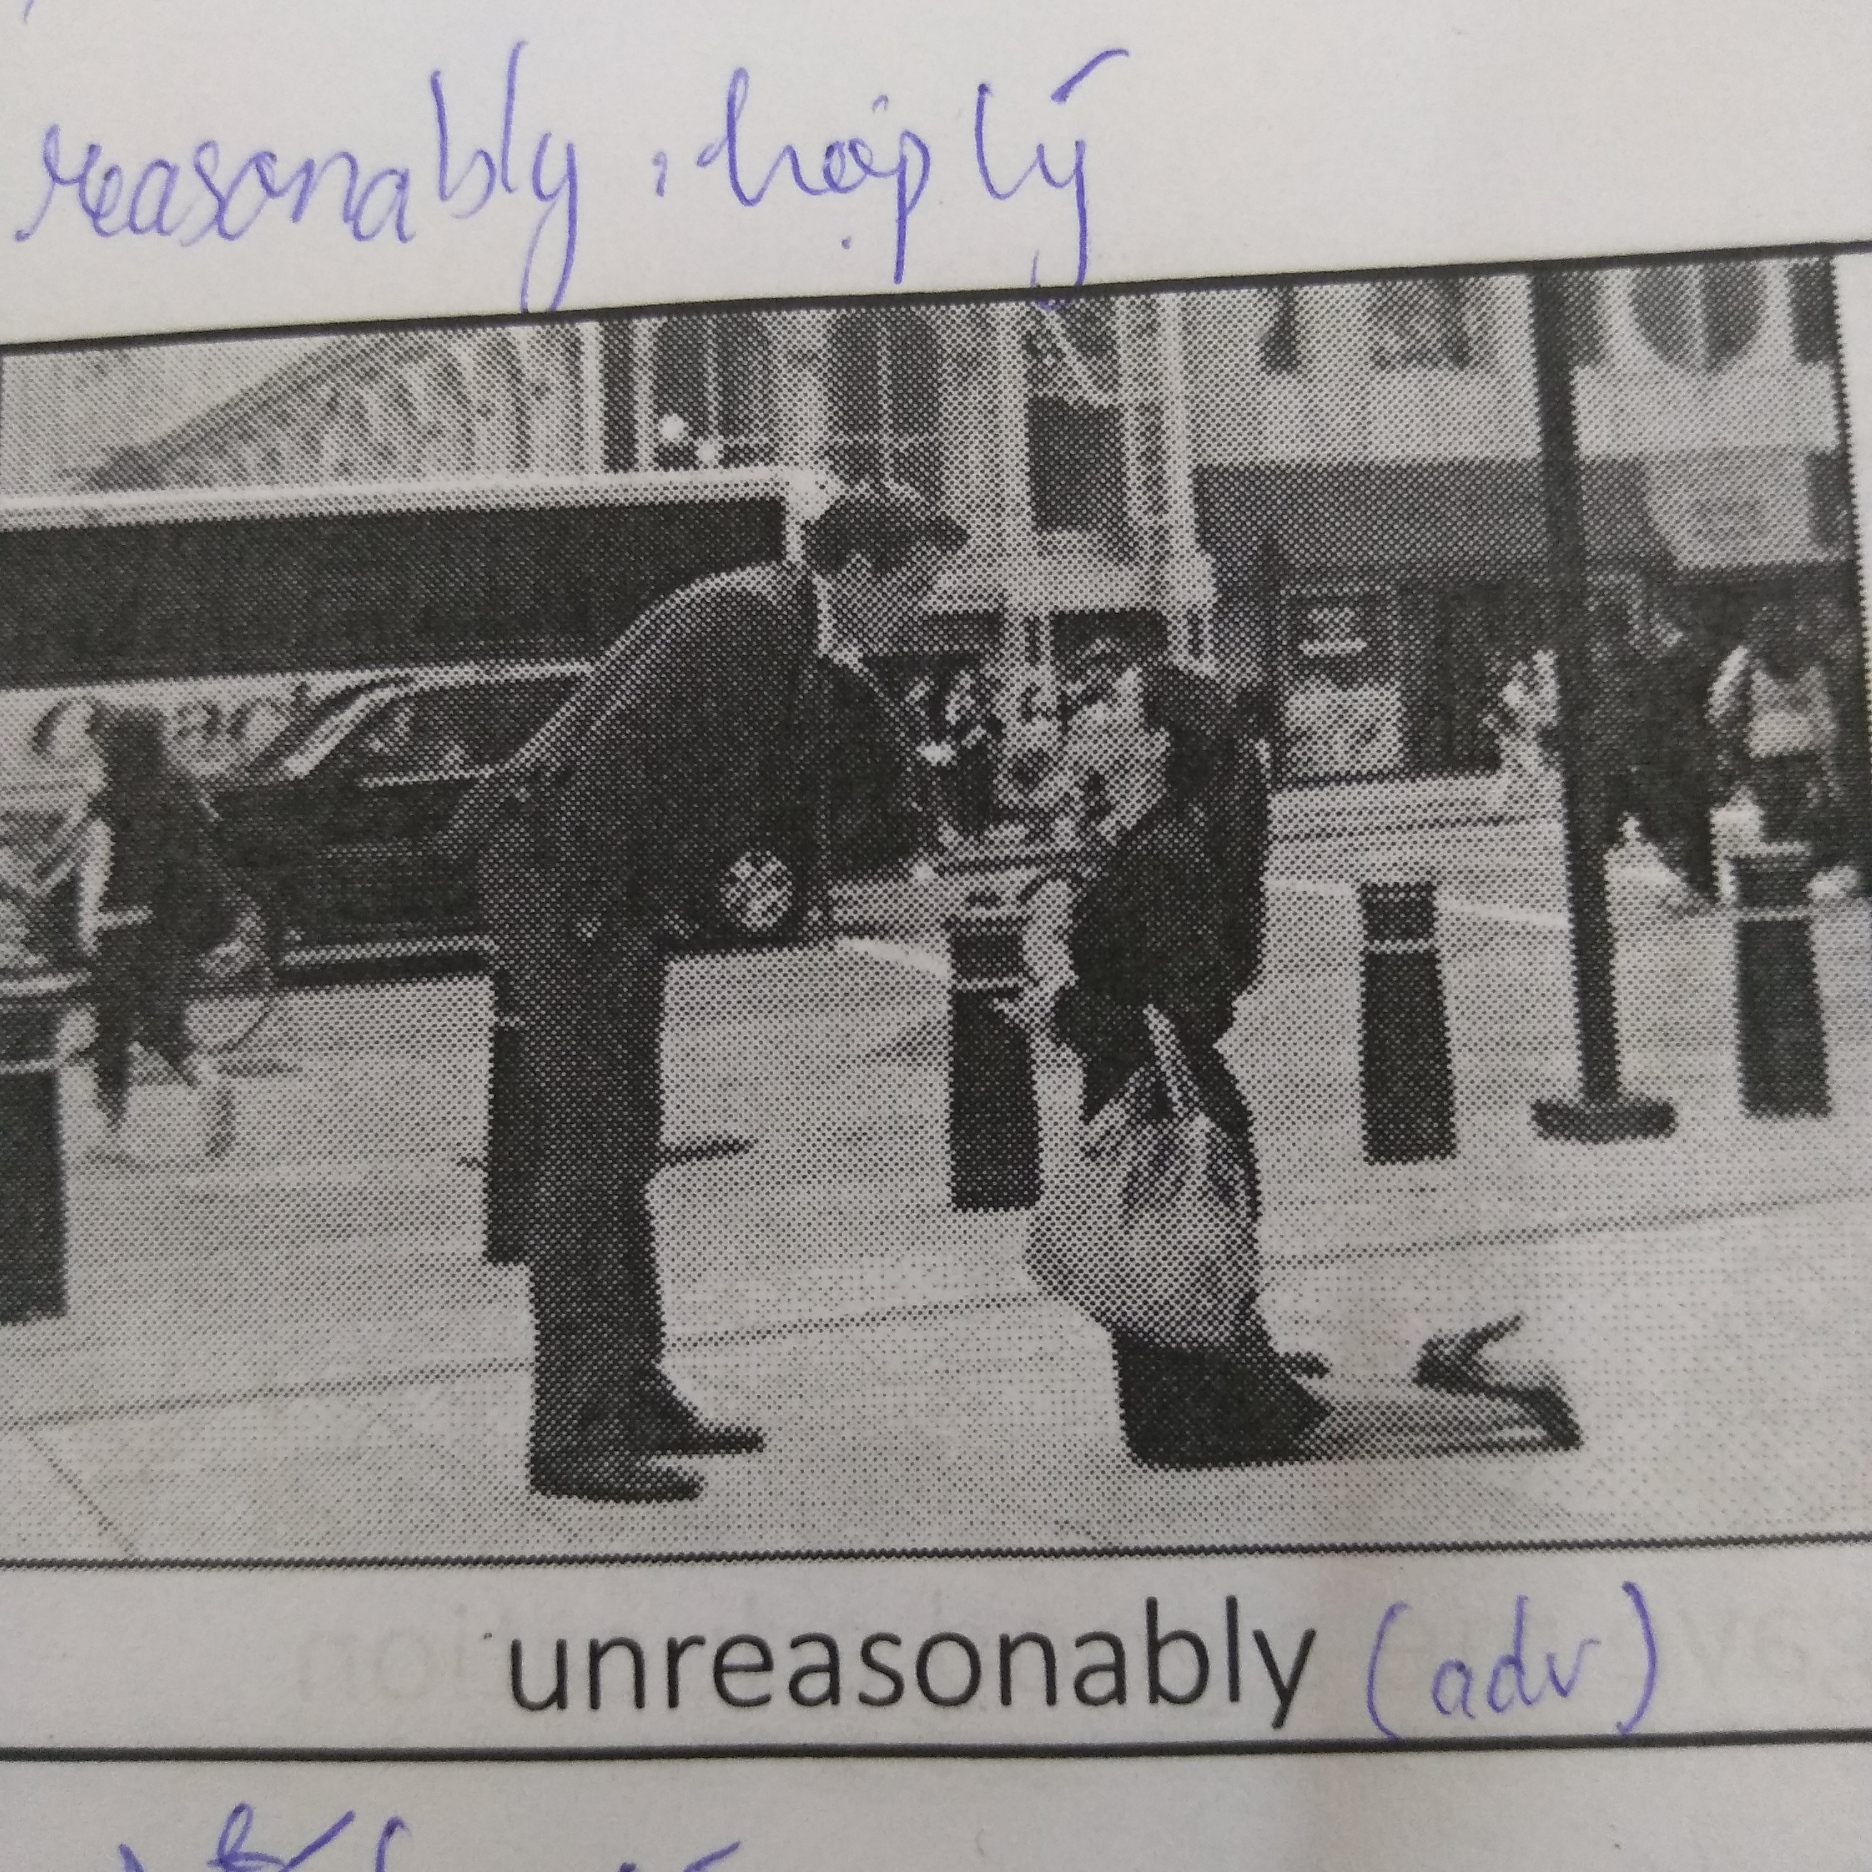 reasonably : hợp lý
unreasonably (adv)